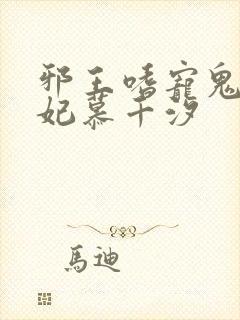 邪王嗜寵鬼
妃慕千汐
馬迪